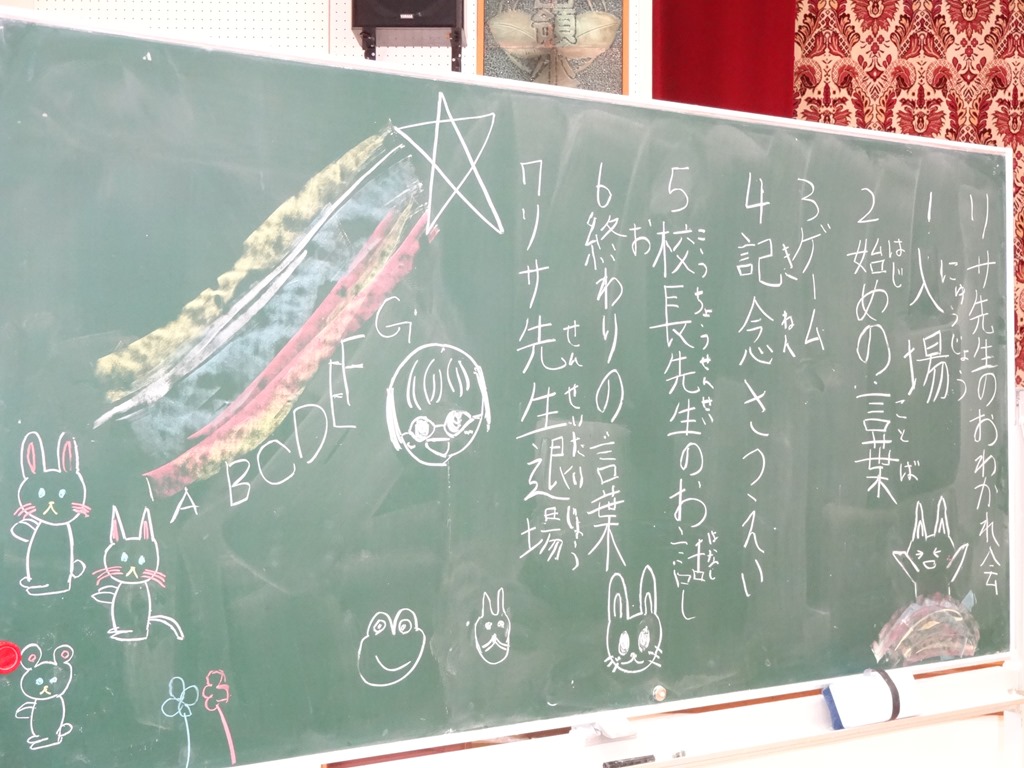 リサ先生のおわかれ会
1入場
にゅうじょう
2始めの言葉
はじ
ことば
3ゲーム
4記念さつえい
きねん
5校長先生のお話し
こうちょうせんせい
はなし
6終わりの言葉
お
7リサ先生退場
せんせいたいじょう
ABCDEFG
YAMAHA